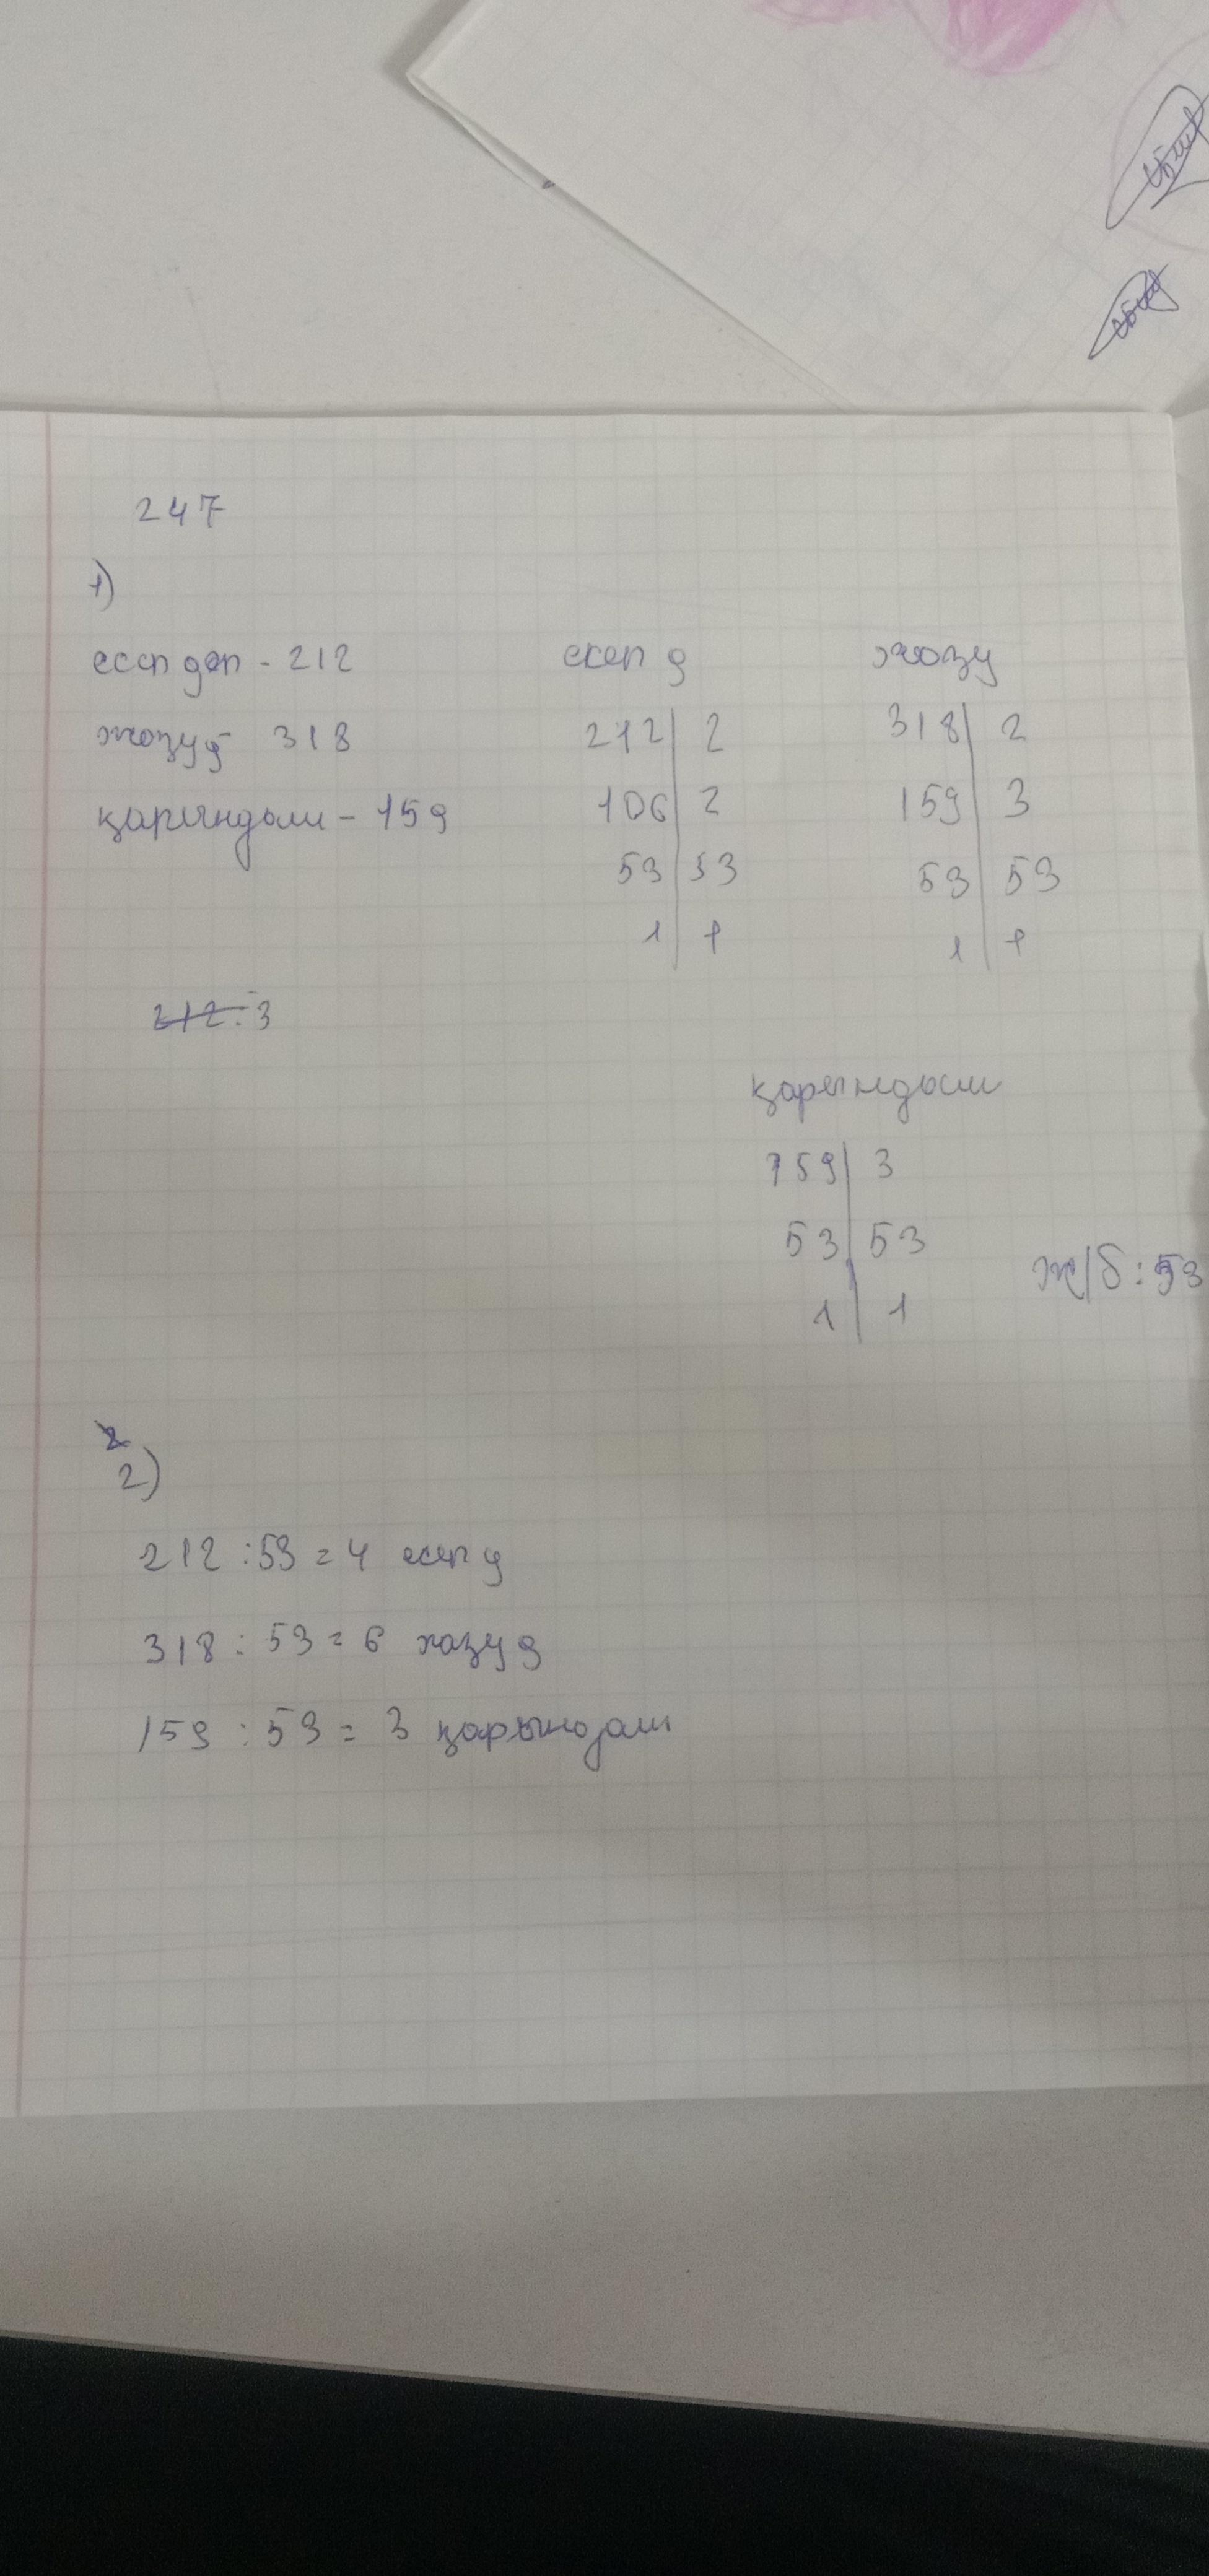 247
1)
есеп деп - 212
жазу д - 318
қарындаш - 159
есеп д
212 | 2
106 | 2
53 | 53
1 | 1
жазу
318 | 2
159 | 3
53 | 53
1 | 1
212:3
қарындаш
159 | 3
53 | 53
1 | 1
Ж/б: 53
2)
212 : 53 = 4 есеп д
318 : 53 = 6 жазу д
159 : 53 = 3 қарындаш